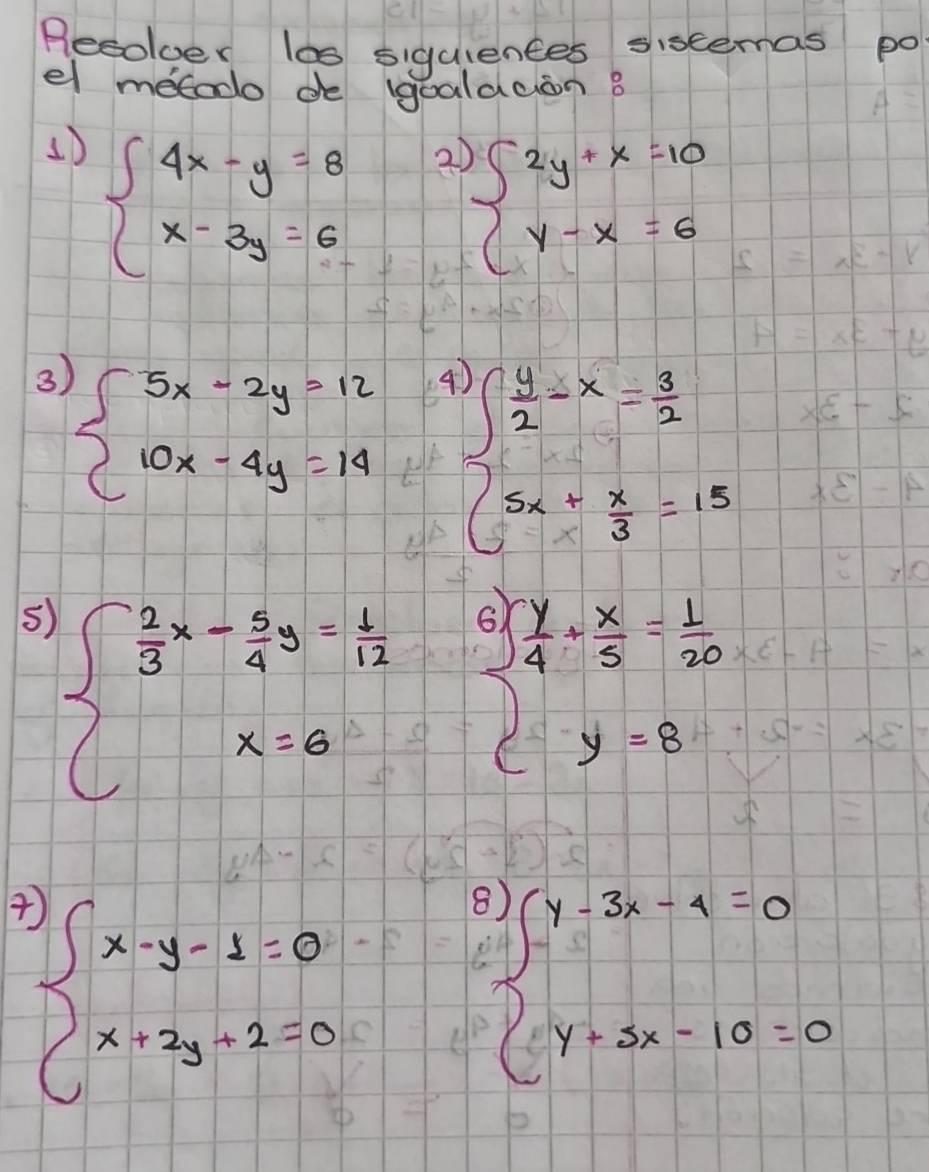 Resolver los siguientes sistemas po
el método de igualación:
1) { 4x - y = 8
x - 3y = 6
2) { 2y + x = 10
y - x = 6
3) { 5x - 2y = 12
10x - 4y = 14
4) { y/2 - x = 3/2
5x + x/3 = 15
5) { 2/3 x - 5/4 y = 1/12
x = 6
6) { y/4 + x/5 = 1/20
y = 8
7) { x - y - 1 = 0
x + 2y + 2 = 0
8) { y - 3x - 4 = 0
y + 5x - 10 = 0